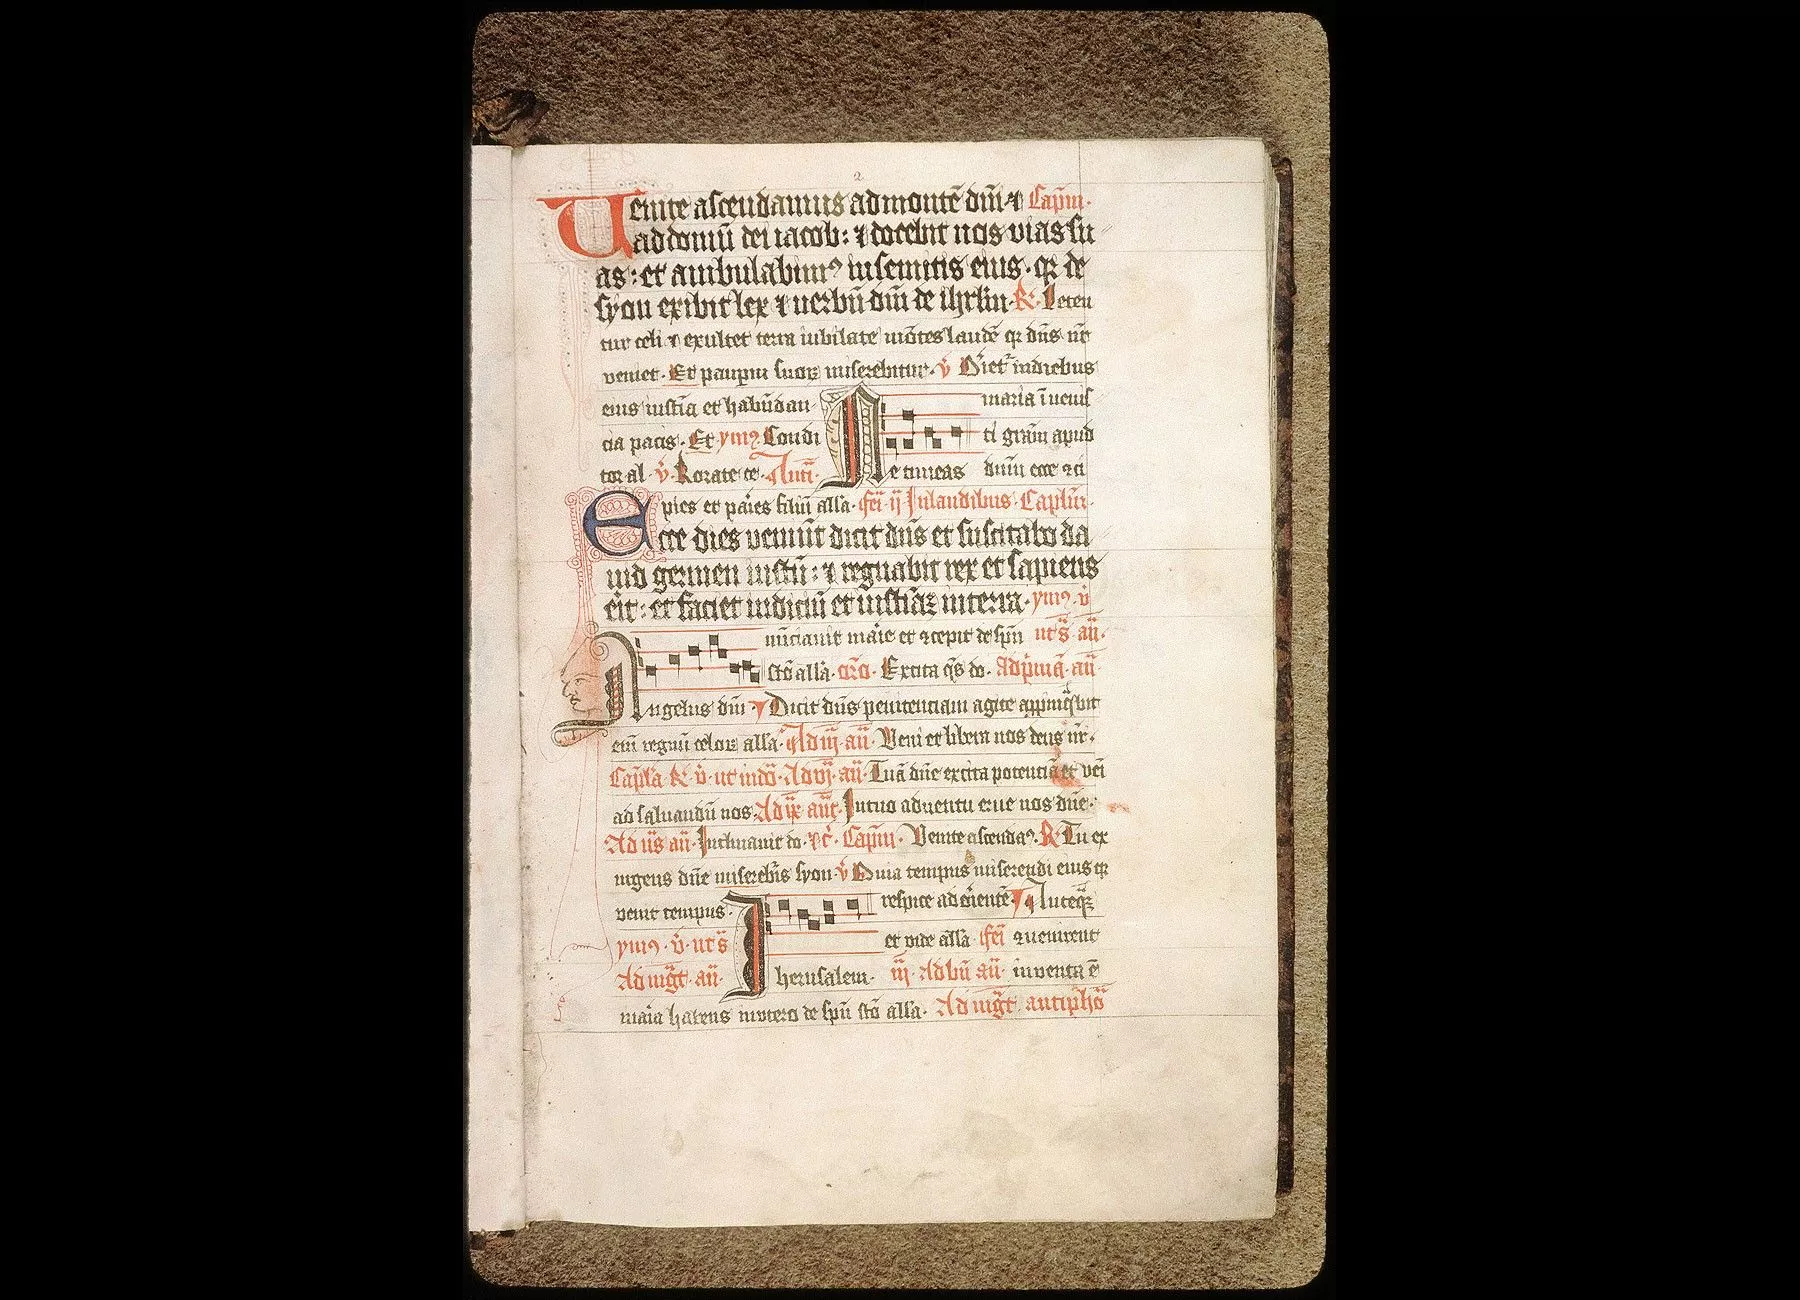 2
Venite ascendamus ad montē dn̄i ⁊ Cap̄m.
ad domū dei iacob: ⁊ docebit nos vias su
as: et ambulabimꝰ in semitis eius. qꝛ de
syon exibit lex ⁊ uerbū dn̄i de ihrl̄m. ℟. Leten
tur celi ⁊ exultet terra iubilate mōtes laudē qꝛ dn̄s nr̄
veniet. Et paupm̄ suoꝝ miserebitur. v̄ Oriet᷑ in diebus
eius iusticia et habūdan maria īuenis
cia pacis. Et ymꝰ Condi ti grām apud
tor al. v̄ Rorate ce. Ant̄. Ne timeas dn̄m ecce ꝯci
pies et paries filiū all̄a. fe᷑i ij In laudibus Capl̄m.
Ecce dies veniūt dicit dn̄s et suscitabo da
uid germen iustū: ⁊ regnabit rex et sapiens
erit: et faciet iudiciū et iusticiā in terra. ymꝰ. v̄
nunciauit marie et ꝯcepit de spū ut s̄. an̄.
sc̄o all̄a. or̄o. Excita qs̄ do. Ad primā. an̄
Angelus dn̄i Dicit dn̄s penitenciam agite appinq̄bit
eni᷑ regnū celoꝝ all̄a. Ad iij. an̄. Veni et libera nos deus nr̄.
Capl̄a ℟. v̄. ut in do᷑. Ad vj. an̄. Tuā dn̄e excita potentiā et veni
ad saluandū nos. Ad ix. ant̄. In tuo aduentu erue nos dn̄e.
Ad vs̄ an̄. Inclinauit do. ꝛc̄. Cap̄m. Venite ascendaꝰ. ℟ Tu ex
urgens dn̄e misereb̄is syon. v̄ Quia tempus miserendi eius qꝛ
venit tempus. respice ad oriētē Anteqꝫ
ymꝰ. v̄. ut s̄ et vide all̄a fe᷑i ꝯuenirent
Ad mgt̄. an̄. Iherusalem. iij. Ad bn̄ an̄. inventa ē
maria habens in utero de spū sc̄o all̄a. Ad mgt̄. antiphō